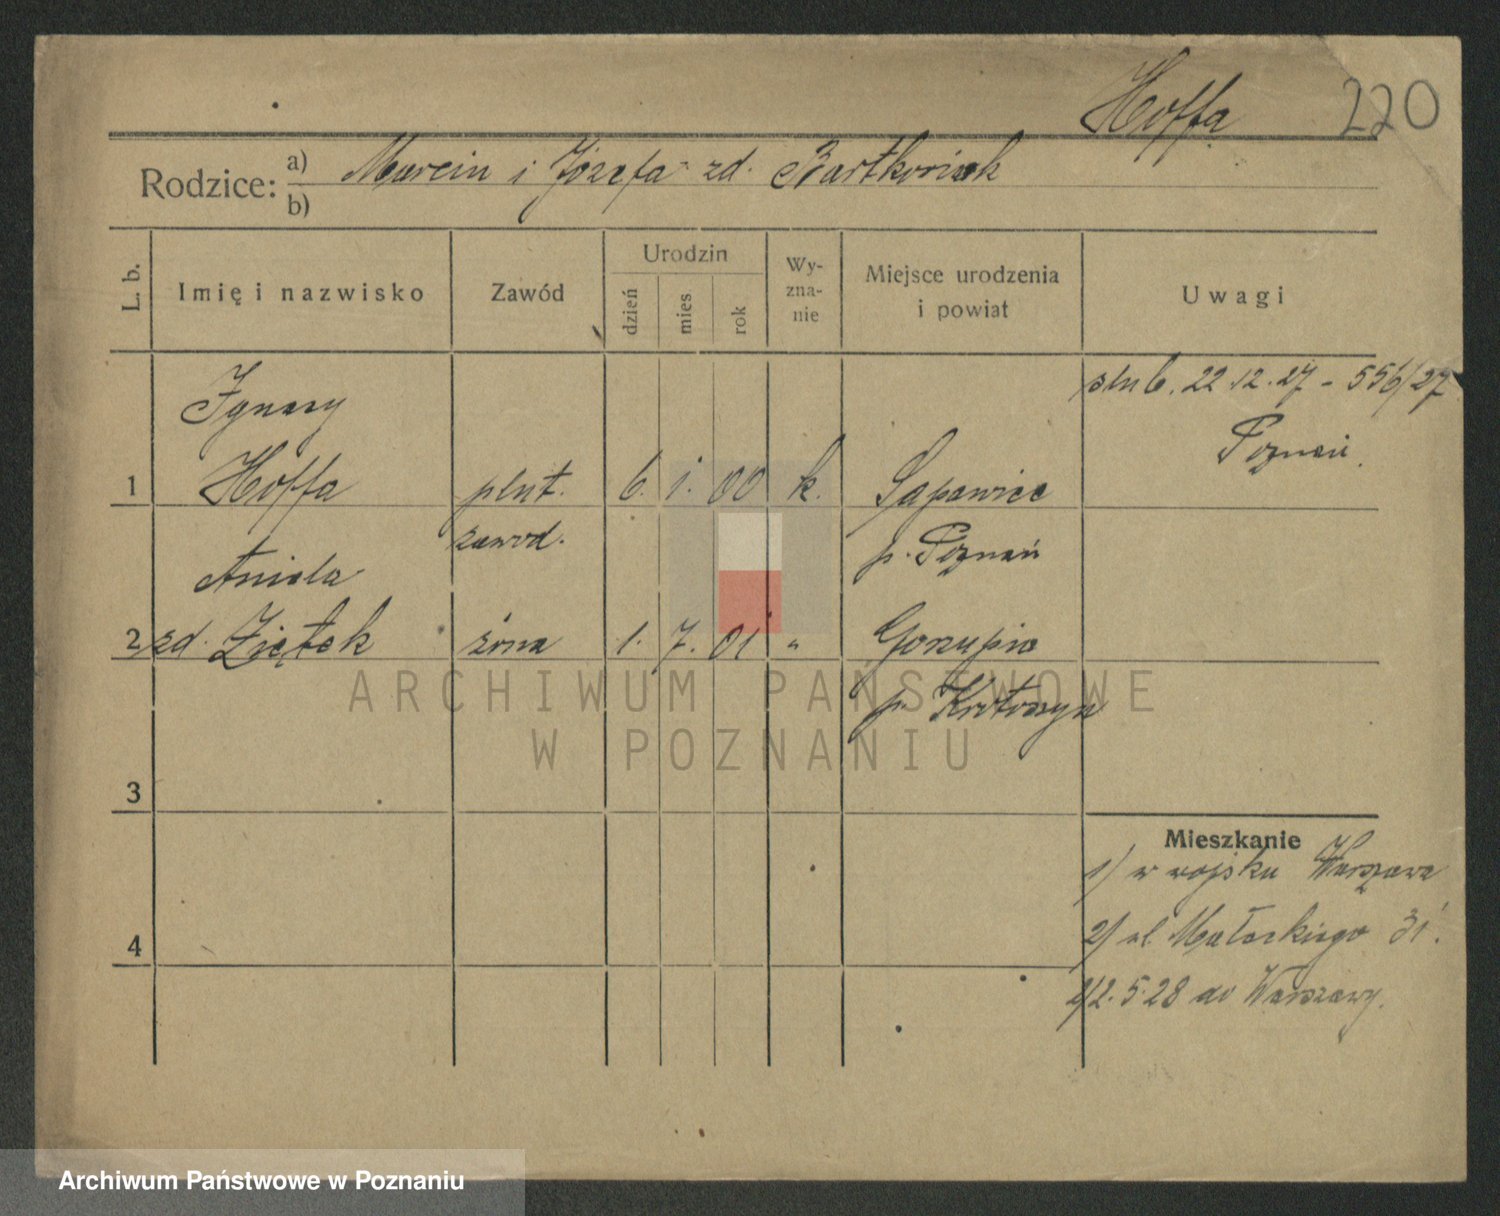 Hoffa 220
Rodzice: a) Marcin i Józefa zd. Bartkowiak
b)
L. b. Imię i nazwisko Zawód Urodzin dzień mies rok Wy-zna-nie Miejsce urodzenia i powiat Uwagi
Ignacy
ślub. 22.12.27 - 556/27
Poznań.
1 Hoffa plut. 6. 1. 00 k. Sapowice
zawod. p. Poznań
Aniela
2 zd. Ziętek żona 1. 7. 01 " Gorzupia
p. Krotoszyn
3
Mieszkanie
1) w wojsku Warszawa
2) ul. Małeckiego 31.
4
2/2.5.28 do Warszawy.
ARCHIWUM PAŃSTWOWE
W POZNANIU
Archiwum Państwowe w Poznaniu